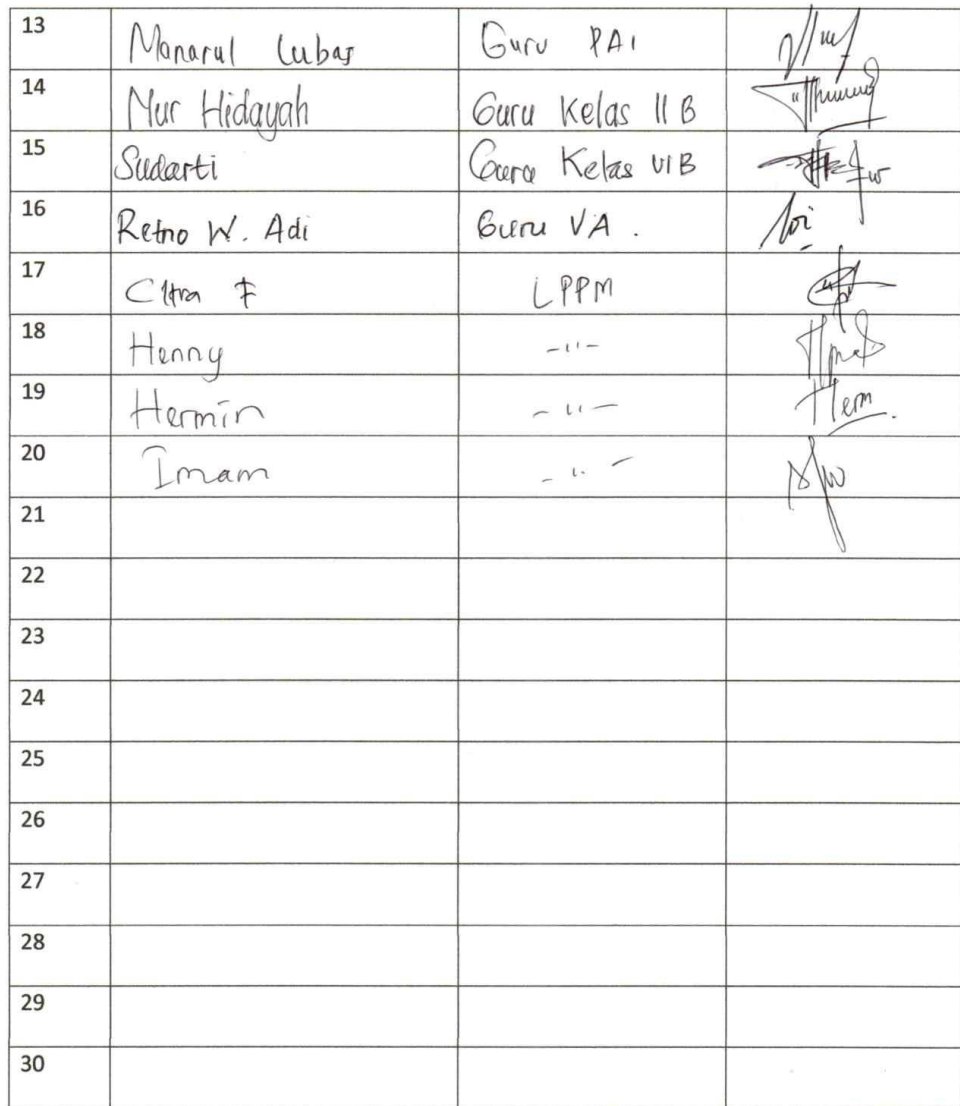 13 Manarul Lubas Guru PAI
14 Nur Hidayah Guru Kelas II B
15 Sudarti Guru Kelas VIB
16 Retno W. Adi Guru VA.
17 Citra F LPPM
18 Henny -"-
19 Hermin -"- Herm.
20 Imam -"-
21
22
23
24
25
26
27
28
29
30